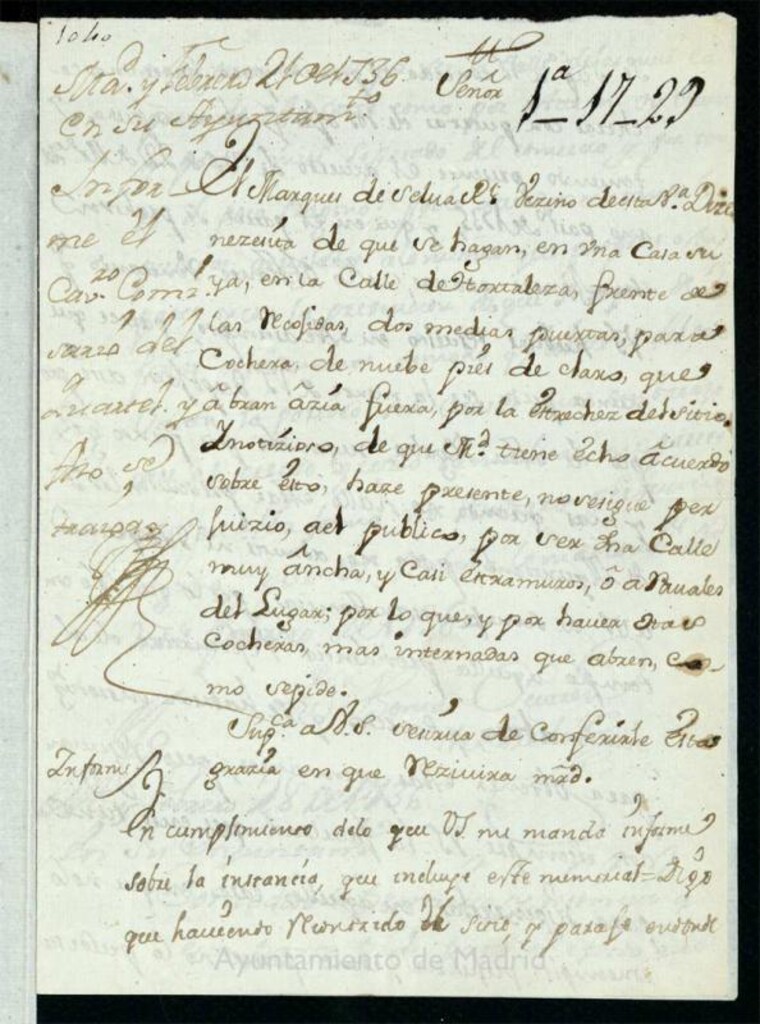 Mad.d y Febrero 21 de 1736.
en su Ayuntam.to
Señor
1a_17_29
Infor
me el
Cav.ro Comi
sario del
Quartel. y
fho se
traiga
El Marques de Selva Rl Vezino de esta V.a Dize
nezesita de que se hagan, en una Casa su
ya, en la Calle de Hortaleza, frente de
las Recojidas, dos medias puertas, para
Cochera, de nuebe pies de claro, que
abran azia fuera, por la estrechez del sitio.
Y notizioso, de que M.d tiene echo acuerdo
sobre esto, haze presente, no se sigue per
juizio, al publico, por ser dha Calle
muy ancha, y Casi estramuros, o a Rauales
del Lugar; por lo que, y por hauer otras
Cocheras, mas internadas que abren, Co-
mo se pide.
Sup.ca a V.S. se sirva de Conferirle esta
grazia en que Rezivira mrd.
Informe
En cumplimiento delo que VS. me manda informe
sobre la instancia, que incluye este memorial = Digo
que haviendo Reconozido el sitio, y paraje endonde
Ayuntamiento de Madrid